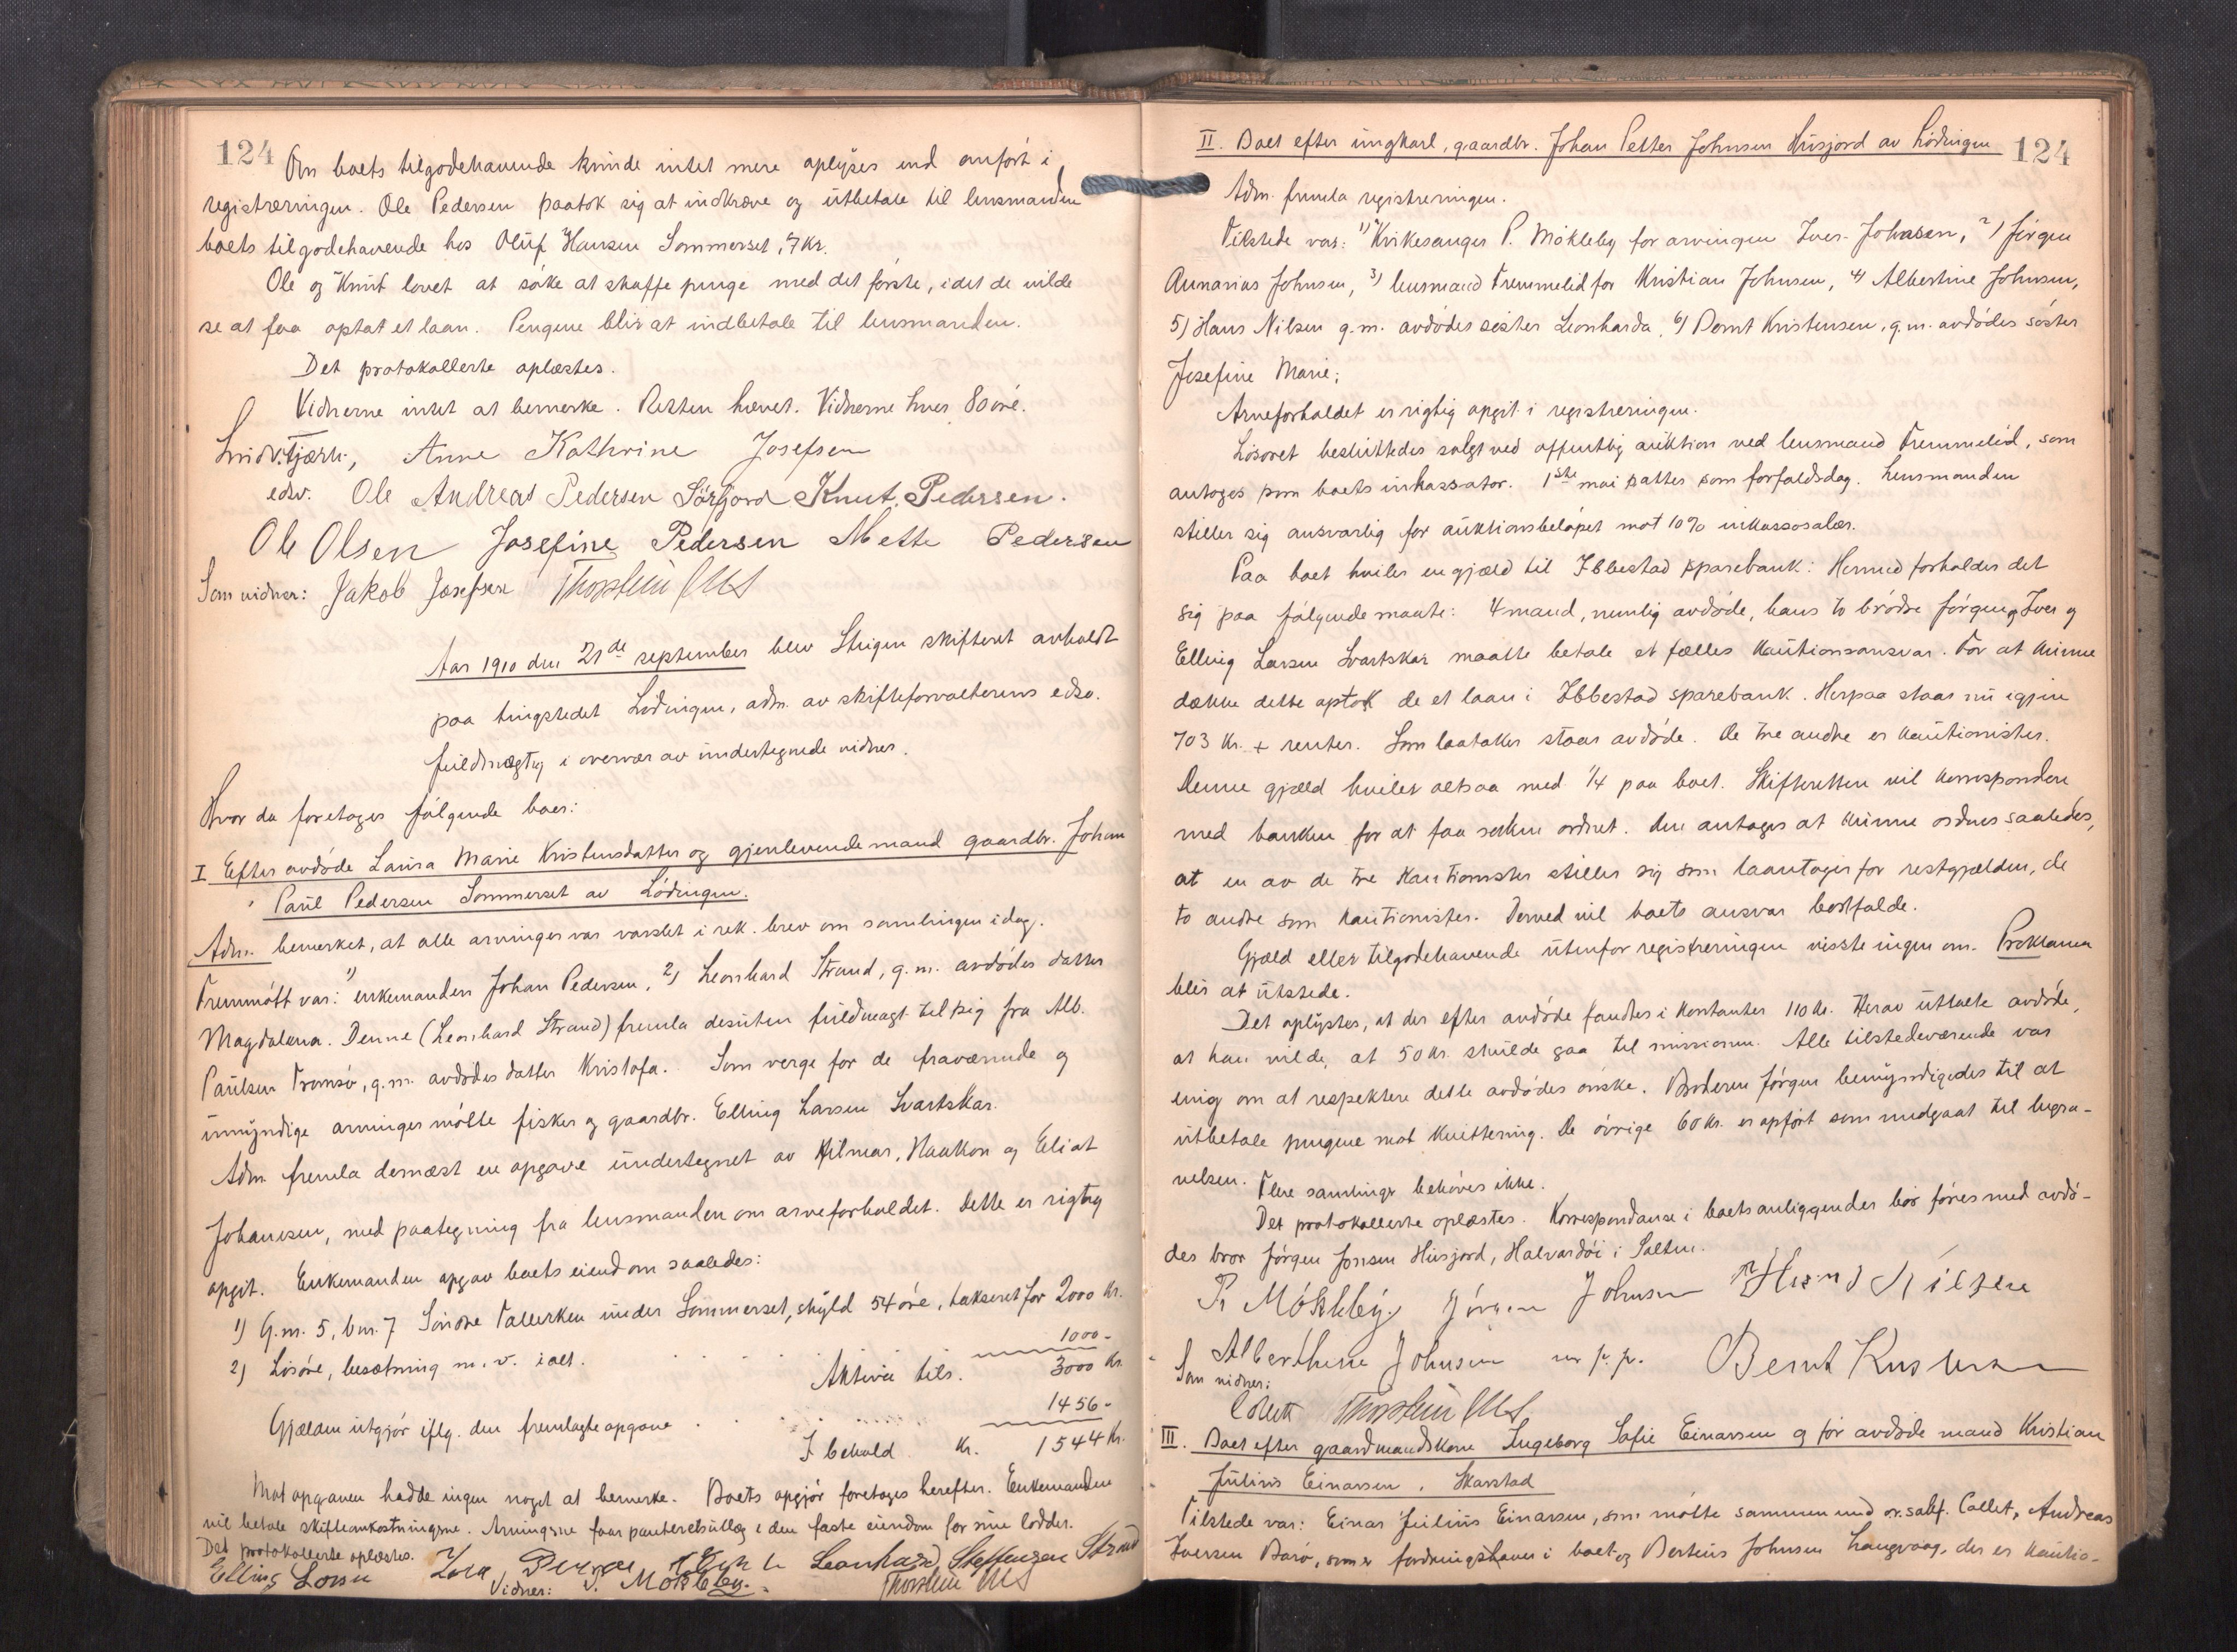 124
Om boets tilgodehavende kunde intet mere oplyses end anført i
registreringen. Ole Pedersen paatok sig at indkræve og utbetale til lensmanden
boets tilgodehavende hos Oluf Hansen Sommerset, 7 kr.
Ole og Knut lovet at søke at skaffe penge med det første, idet de vilde
se at faa optat et laan. Pengene blir at indbetale til lensmanden.
Det protokollerte oplæstes.
Vidnerne intet at bemerke. Retten hævet. Vidnerne hver 80 øre.
Anne Kathrine Josefsen
edsv. Ole Andreas Pedersen Sörfjord Knut Pedersen.
Ole Olsen Josefine Pedersen Mette Pedersen
Som vidner: Jakob Josefsen Thorstein
Aar 1910 den 21de september blev Steigen skifteret avholdt
paa tingstedet Lødingen, adm. av skifteforvalterens edsv.
fuldmægtig i overvær av undertegnede vidner.
Hvor da foretages følgende boer:
I Efter avdøde Laura Marie Kristensdatter og gjenlevende mand gaardbr. Johan
Paul Pedersen Sommerset av Lødingen.
Adm. bemerket, at alle arvinger var varslet i rek. brev om samlingen idag.
Fremmøtt var: 1) enkemanden Johan Pedersen, 2) Leonhard Strand, g.m. avdødes datter
Magdalena. Denne (Leonhard Strand) fremla desuten fuldmagt til sig fra Alb.
Paulsen Tromsø, g.m. avdødes datter Kristofa. Som verge for de fraværende og
umyndige arvinger møtte fisker og gaardbr. Elling Larsen Svartskar.
Adm. fremla dernæst en opgave undertegnet av Hilmar, Haakon og Eliot
Johansen, med paategning fra lensmanden om arveforholdet. Dette er rigtig
opgit. Enkemanden opgav boets eiendom saaledes:
1) G.nr. 5, b.nr. 7 Søndre Tallerken under Sommerset, skyld 54 øre, takseret for 2000 Kr.
2) Løsøre, besætning m.v. ialt. 1000 -
Aktiva tils. 3000 Kr.
Gjælden utgjør iflg. den fremlagte opgave 1456 -
I behold Kr. 1544 Kr.
Mot opgaven hadde ingen noget at bemerke. Boets opgjør foretages herefter. Enkemanden
vil betale skifteomkostningerne. Arvingerne faar panteretsutlæg i den faste eiendom for sine lodder.
Det protokollerte oplæstes. Leonhard Steffensen Strand
Elling Larsen
Vidner: P. Møkleby. Thorstein
124
II. Boet efter ungkarl, gaardbr. Johan Petter Johnsen Husjord av Lødingen
Adm. fremla registreringen.
Tilstede var: 1) Kirkesanger P. Møkleby for arvingen Iver Johnsen, 2) Jørgen
Annanias Johnsen, 3) lensmand Tremmelid for Kristian Johnsen, 4) Albertine Johnsen,
5) Hans Nilsen g.m. avdødes søster Leonharda, 6) Bernt Kristensen, g.m. avdødes søster
Josefine Marie;
Arveforholdet er rigtig opgit i registreringen.
Løsøret besluttedes solgt ved offentlig auktion ved lensmand Tremmelid, som
antages som boets inkassator. 1ste mai sattes som forfaldsdag. Lensmanden
stiller sig ansvarlig for auktionsbeløpet mot 10% inkassosalær.
Paa boet hviler en gjæld til Ibbestad sparebank: Hermed forholder det
sig paa følgende maate: 4 mand, nemlig avdøde, hans to brødre Jørgen og Iver og
Elling Larsen Svartskar maatte betale et fælles kautionsansvar. For at kunne
dække dette optok de et laan i Ibbestad sparebank. Herpaa staar nu igjen
703 Kr. + renter. Som laataker staar avdøde. De tre andre er kautionister.
Denne gjæld hviler altsaa med 1/4 paa boet. Skifteretten vil korrespondere
med banken for at faa saken ordnet. Den antages at kunne ordnes saaledes,
at en av de tre kautionister stiller sig som laantager for restgjælden, de
to andre som kautionister. Derved vil boets ansvar bortfalde.
Gjæld eller tilgodehavende utenfor registreringen visste ingen om. Proklama
blir at utstede.
Det oplystes, at der efter avdøde fandtes i kontanter 110 kr. Herav uttalte avdøde,
at han vilde, at 50 kr. skulde gaa til missionen. Alle tilstedeværende var
enig om at respektere dette avdødes ønske. Broderen Jørgen bemyndigedes til at
utbetale pengene mot kvittering. De øvrige 60 kr. er opført som medgaat til begra-
velsen. Flere samlinger behøves ikke.
Det protokollerte oplæstes. Korrespondanse i boets anliggender bør føres med avdø-
des bror Jørgen Jonsen Husjord, Halvardøi i Salten.
P. Møkleby Jørgen Johnsen Hans Nilsen
Alberthine Johnsen m. p. p. Bernt Kristensen
Som vidner:
Collett Thorstein
III. Boet efter gaardmandskone Ingeborg Sofie Einarsen og før avdøde mand Kristian
Julius Einarsen, Skarstad
Tilstede var: Einar Julius Einarsen, som møtte sammen med o.r.sakf. Collet, Andreas
Iversen Barø, som er fordringshaver i boet og Bertius Johnsen Langvaag, der er kautio-